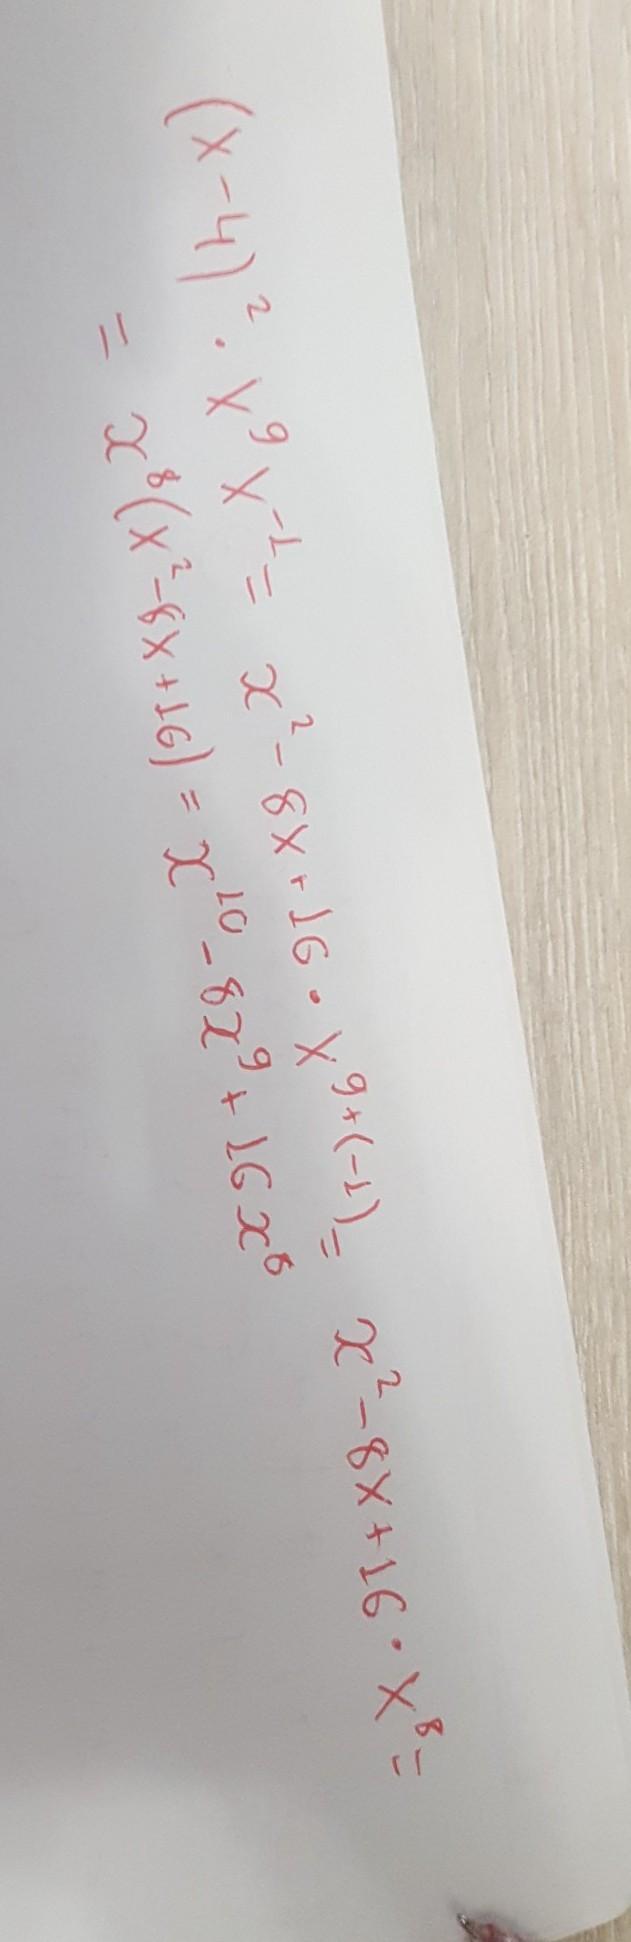 (x-4)² · x⁹ x⁻¹ = x² - 8x + 16 · x⁹⁺⁽⁻¹⁾ = x² - 8x + 16 · x⁸ =
= x⁸(x² - 8x + 16) = x¹⁰ - 8x⁹ + 16x⁸